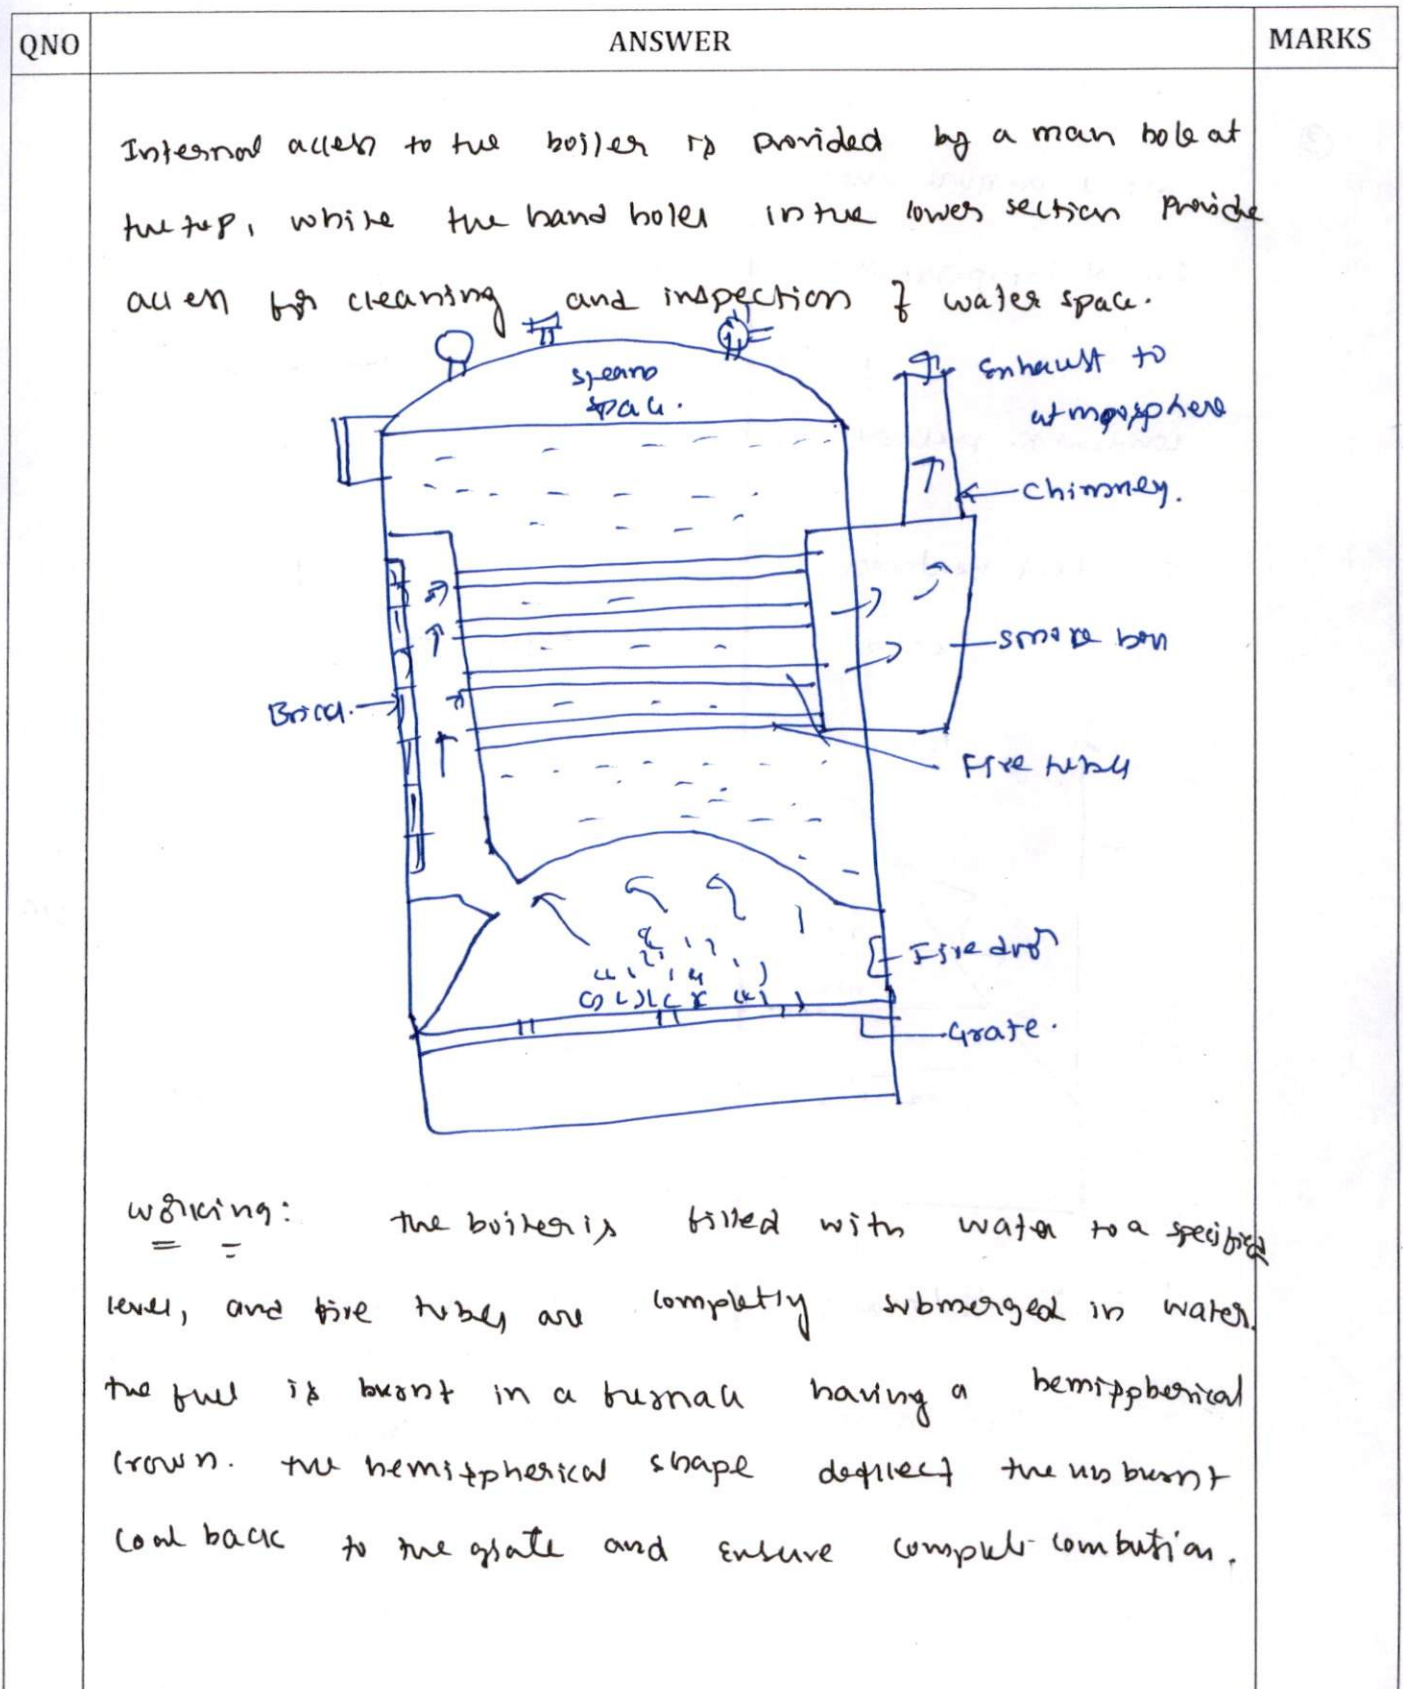 QNO ANSWER MARKS
Internal access to the boiler is provided by a man hole at
the top, while the hand holes in the lower section provide
access for cleaning and inspection of water space.
Steam
space.
Exhaust to
atmosphere
Chimney.
Smoke box
Brick.
Fire tubes
Fire door
Grate.
Working: The boiler is filled with water to a specified
level, and fire tubes are completly submerged in water.
the fuel is burnt in a furnace having a hemispherical
crown. the hemispherical shape deflect the unburnt
coal back to the grate and ensure complet combution.